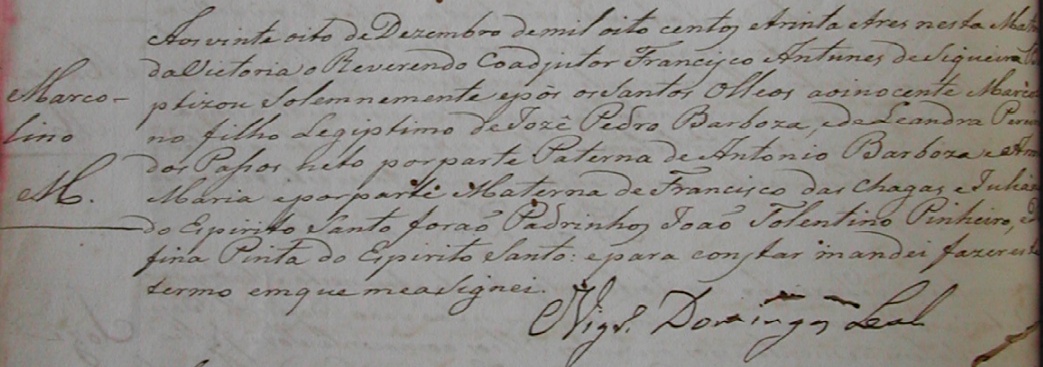 Aos vinte oito de Dezembro de mil oito centos etrinta etres nesta Matr
da Victoria o Reverendo Coadjutor Francisco Antunes de Siqueira
Marco-
ptizou Solemnemente epôs os Santos Olleos aoinocente Marco
lino
no filho Legiptimo de Jozê Pedro Barboza, ede Leandra
dos Passos neto por parte Paterna de Antonio Barboza e
M.
Maria epor parte Materna de Francisco das Chagas e
do Espirito Santo foraõ Padrinhos Joaõ Tolentino Pinheiro, e
fina Pinta do Espirito Santo: epara constar mandei fazer este
termo emque measignei.
Vigr.º Domingos Leal